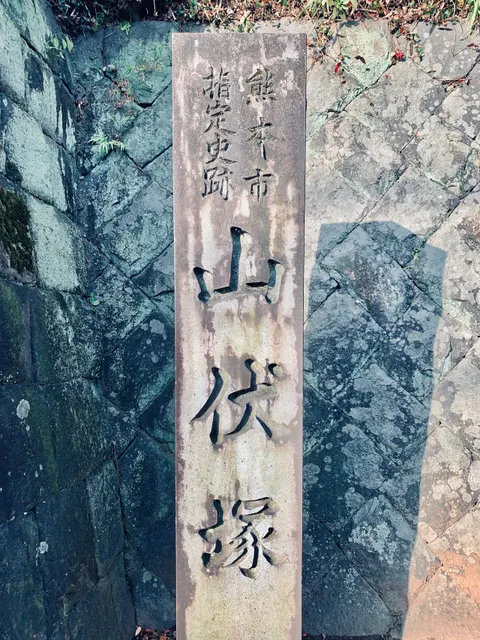 熊本市
指定史跡
山伏塚